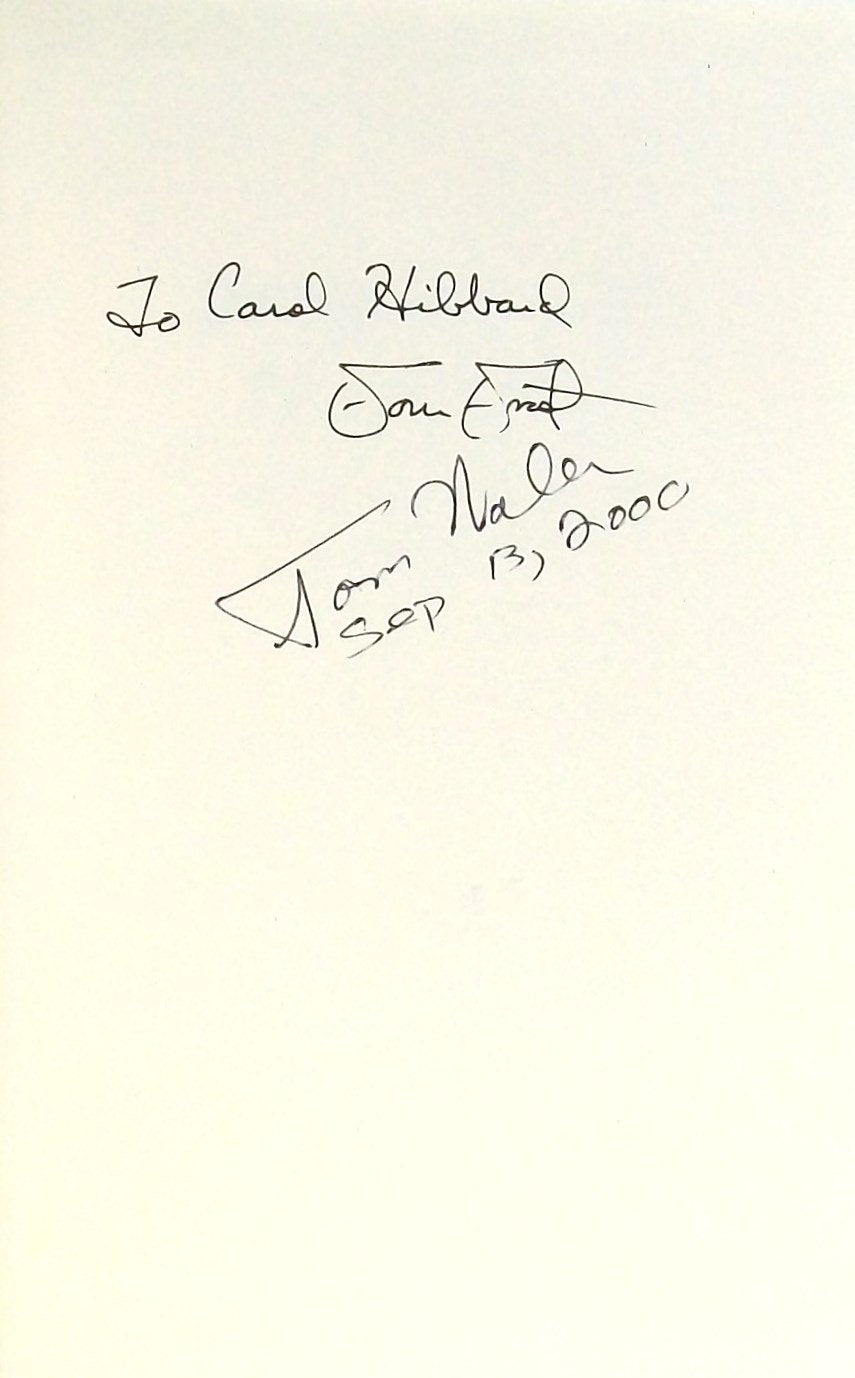 To Carol Hibbard
Tom
Tom Nalen
Sep 13, 2000